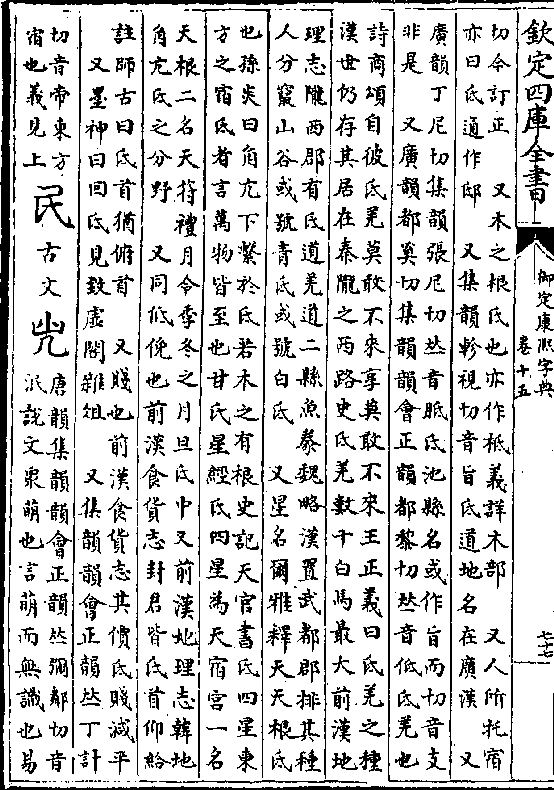 欽定四庫全書
御定康熙字典
卷十五
七七
切今訂正　又木之根氐也亦作柢義詳木部　又人所托宿
亦曰氐通作邸　又集韻軫視切音旨氐道地名在廣漢　又
廣韻丁尼切集韻張尼切𠀤音胝氐池縣名或作旨而切音支
非是　又廣韻都奚切集韻韻會正韻都黎切𠀤音低氐羌也
詩商頌自彼氐羌莫敢不來享莫敢不來王正義曰氐羌之種
漢世仍存其居在秦隴之西路史氐羌數十白馬最大前漢地
理志隴西郡有氐道羌道二縣魚豢魏略漢置武都郡排其種
人分竄山谷或號青氐或號白氐　又星名爾雅釋天天根氐
也孫炎曰角亢下繫於氐若木之有根史記天官書氐四星東
方之宿氐者言萬物皆至也甘氏星經氐四星為天宿宮一名
天根二名天符禮月令季冬之月旦氐中又前漢地理志韓地
角亢氐之分野　又同低俛也前漢食貨志封君皆氐首仰給
註師古曰氐首猶俯首　又賤也前漢食貨志其價氐賤減平
又星神曰回氐見致虛閣雜俎　又集韻韻會正韻𠀤丁計
切音帝東方
宿也義見上
民古文𠘽
唐韻集韻韻會正韻𠀤彌鄰切音
泯說文衆萌也言萌而無識也易